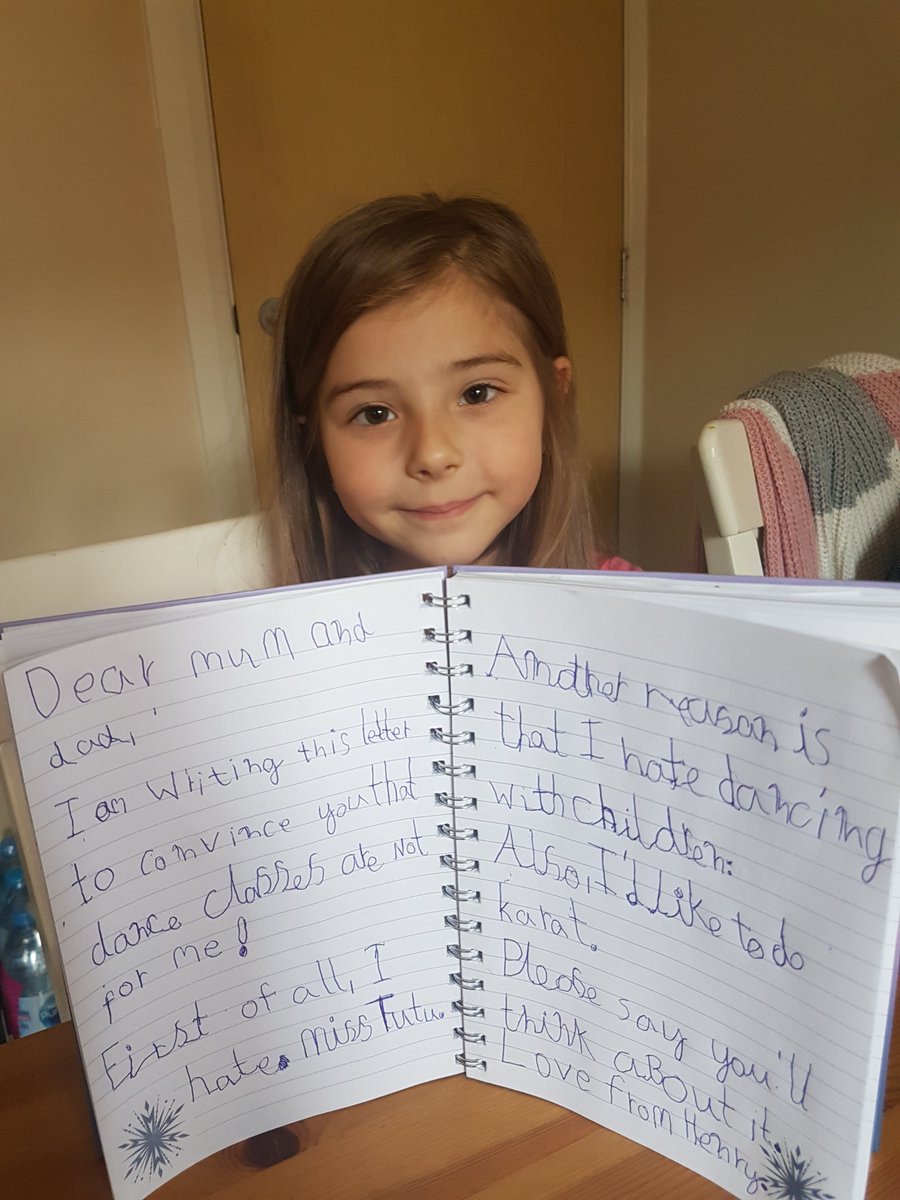 Dear mum and
dad,
I am writing this letter
to convince you that
dance classes are not
for me!
First of all, I
hate miss Tutu.
Another reason is
that I hate dancing
with children.
Also, I'd like to do
karat.
Please say you'll
think about it.
Love from Henry.